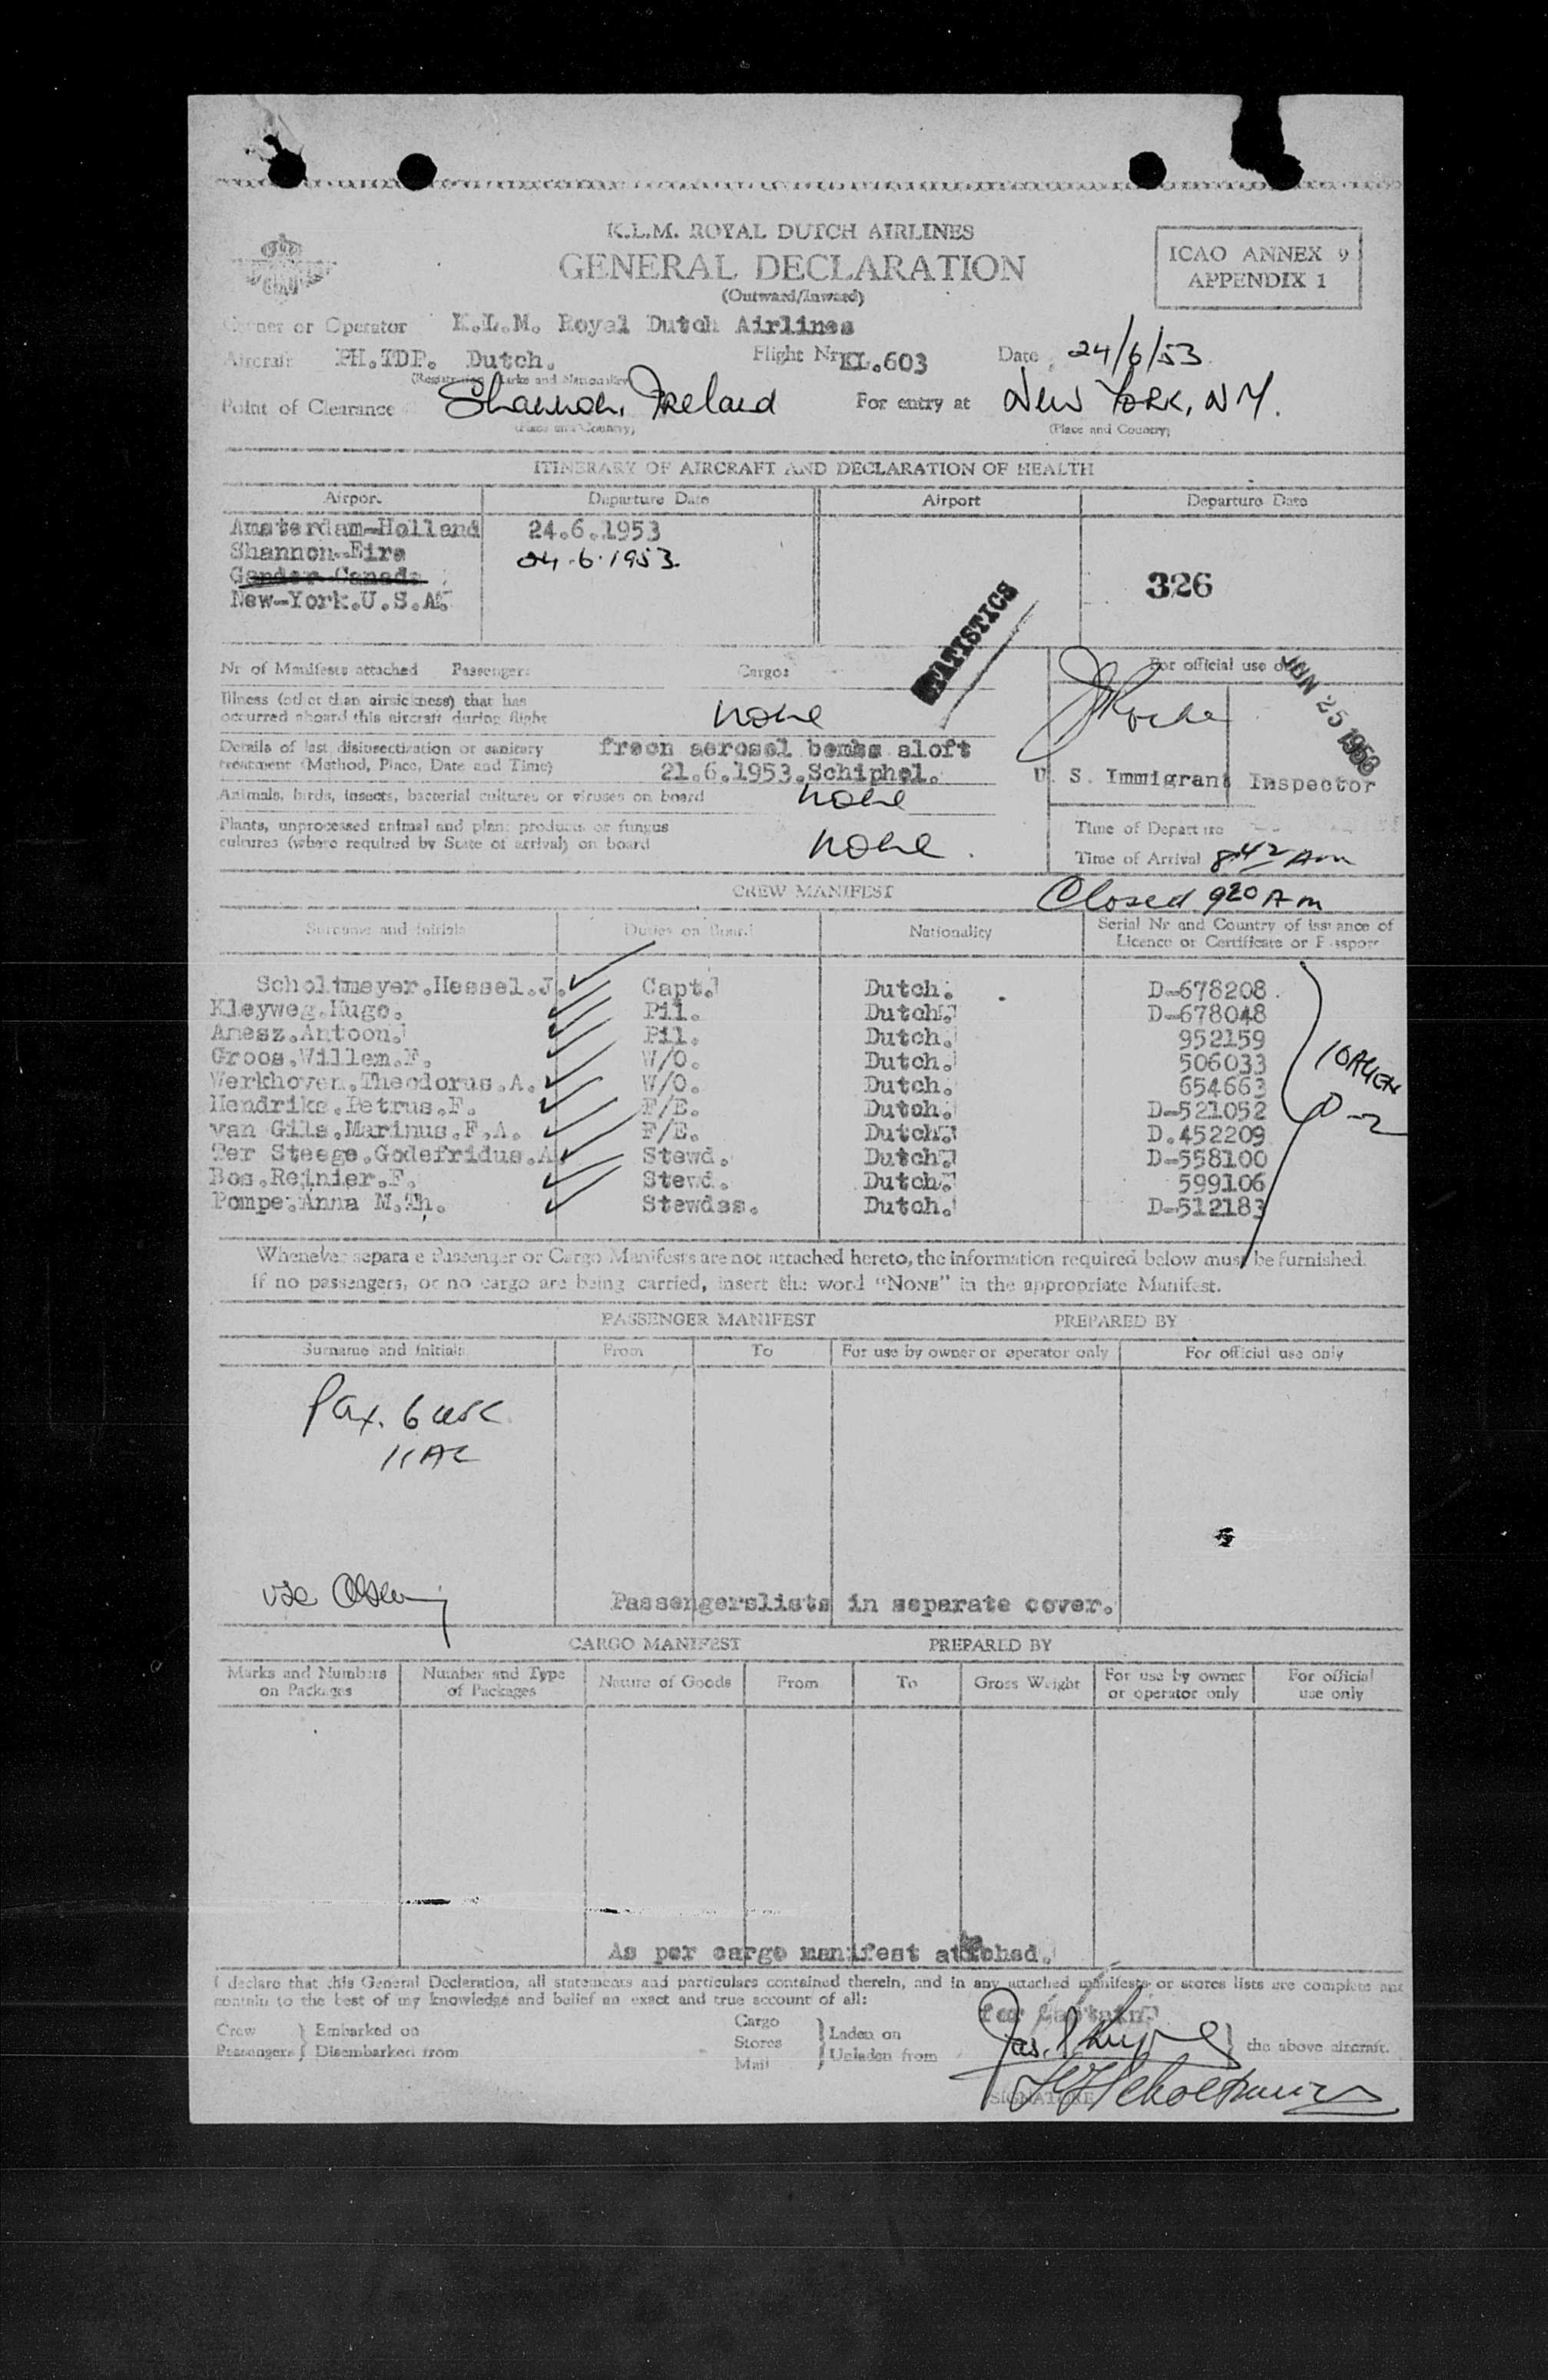 K.L.M. ROYAL DUTCH AIRLINES
GENERAL DECLARATION
(Outward/Inward)
ICAO ANNEX 9
APPENDIX 1
Owner or Operator K.L.M. Royal Dutch Airlines
Aircraft PH.TDP. Dutch. Flight Nr KL.603 Date 24/6/53
(Registration Marks and Nationality)
Point of Clearance Shannon, Ireland For entry at New York, NY.
(Place and Country) (Place and Country)
ITINERARY OF AIRCRAFT AND DECLARATION OF HEALTH
Airport Departure Date Airport Departure Date
Amsterdam-Holland 24.6.1953
Shannon-Eire 24.6.1953
Gander-Canada
New-York.U.S.A.
326
STATISTICS
Nr of Manifests attached Passenger: Cargo: For official use only
JUN 25 1953
Illness (other than airsickness) that has
occurred aboard this aircraft during flight none
Details of last disinsectization or sanitary
treatment (Method, Place, Date and Time) freon aerosol bombs aloft
21.6.1953.Schiphol.
U. S. Immigrant Inspector
Animals, birds, insects, bacterial cultures or viruses on board none
Plants, unprocessed animal and plant products or fungus
cultures (where required by State of arrival) on board none.
Time of Departure
Time of Arrival 8:42 Am
CREW MANIFEST Closed 9:20 Am
Surname and Initials Duties on Board Nationality Serial Nr and Country of issuance of
Licence or Certificate or Passport
Scholtmeyer.Hessel.J. Capt. Dutch. D-678208
Kleyweg.Hugo. Pil. Dutch. D-678048
Anesz.Antoon. Pil. Dutch. 952159
Groos.Willem.F. W/O. Dutch. 506033
Werkhoven.Theodorus.A. W/O. Dutch. 654663
Hendriks.Petrus.F. F/E. Dutch. D-521052
van Gils.Marinus.F.A. F/E. Dutch. D.452209
Ter Steege.Godefridus.A. Stewd. Dutch. D-558100
Bos.Reinier.F. Stewd. Dutch. 599106
Pompe.Anna M.Th. Stewdss. Dutch. D-512183
D-2
Whenever separate Passenger or Cargo Manifests are not attached hereto, the information required below must be furnished.
If no passengers, or no cargo are being carried, insert the word “NONE” in the appropriate Manifest.
PASSENGER MANIFEST PREPARED BY
Surname and Initials From To For use by owner or operator only For official use only
Pax. 6 USC
11 AC
Passengerslists in separate cover.
CARGO MANIFEST PREPARED BY
Marks and Numbers on Packages Number and Type of Packages Nature of Goods From To Gross Weight For use by owner or operator only For official use only
As per cargo manifest attached.
I declare that this General Declaration, all statements and particulars contained therein, and in any attached manifests or stores lists are complete and
contain to the best of my knowledge and belief an exact and true account of all:
for Captain
Crew Passengers } Embarked on Disembarked from
Cargo Stores Mail } Laden on Unladen from
} the above aircraft.
SIGNATURE